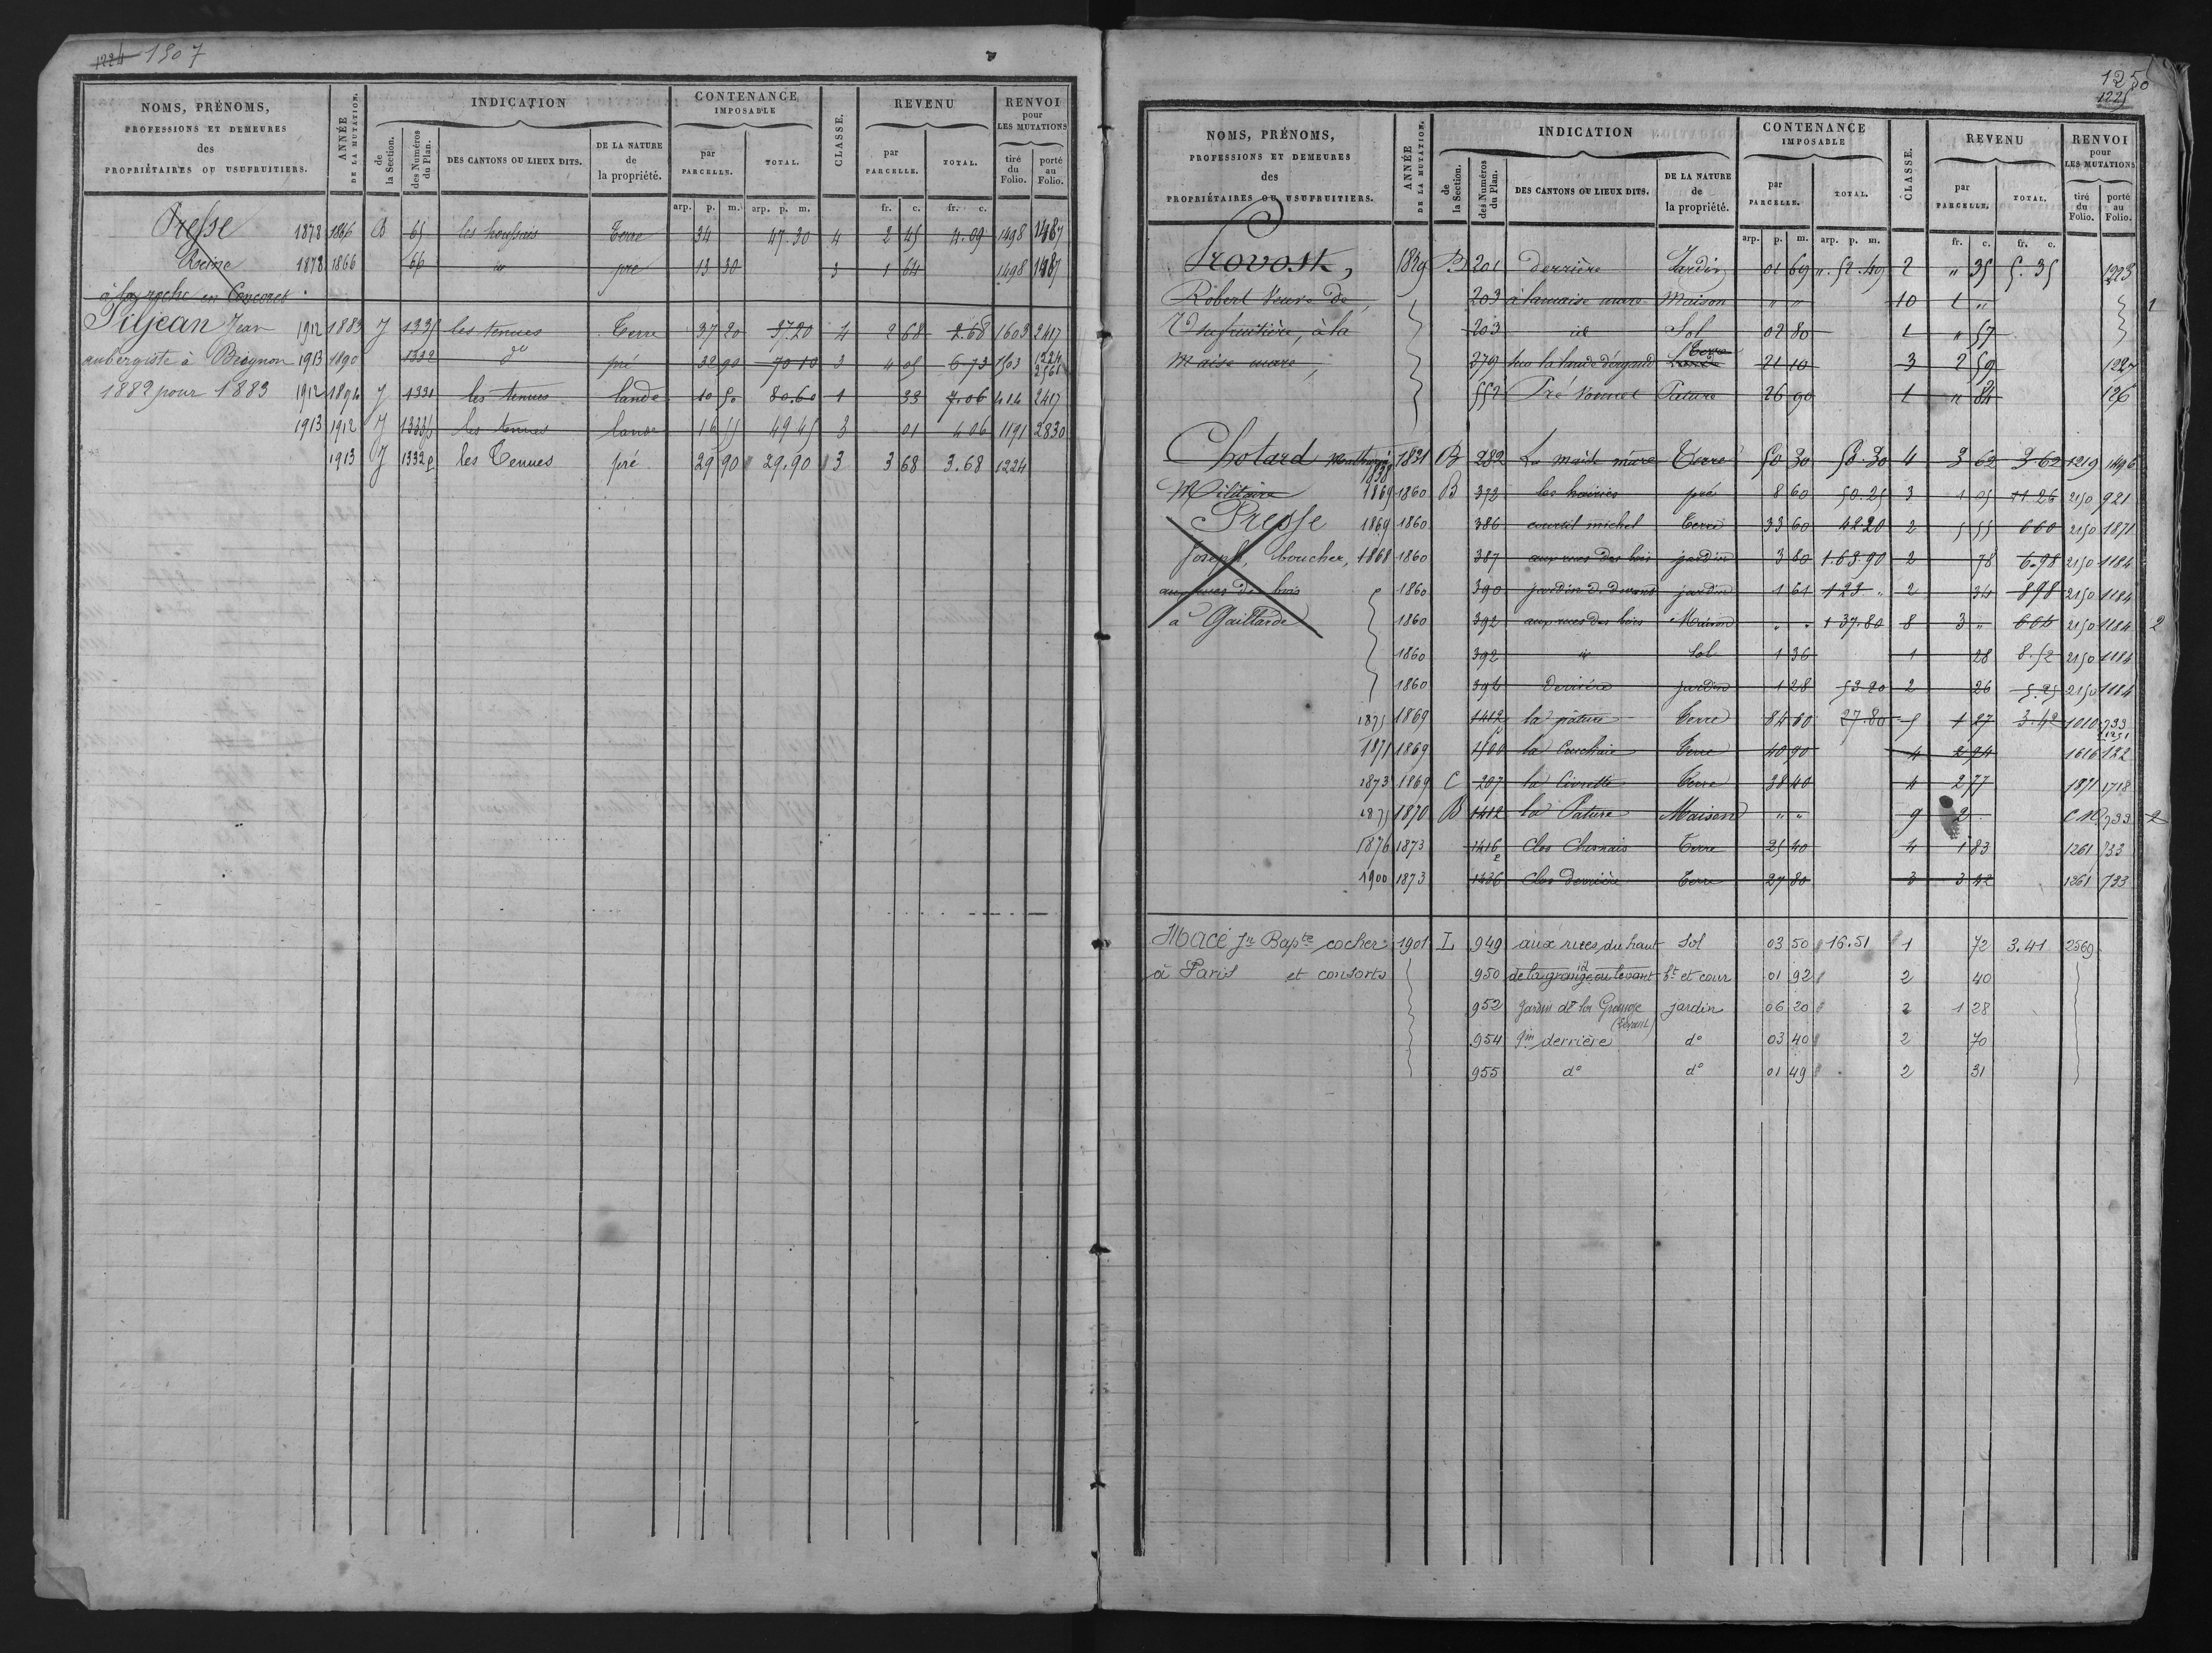 1224 1507
NOMS, PRÉNOMS, PROFESSIONS ET DEMEURES des PROPRIÉTAIRES OU USUFRUITIERS.
ANNÉE DE LA MUTATION.
INDICATION
de la Section.
des Numéros du Plan.
DES CANTONS OU LIEUX DITS.
DE LA NATURE de la propriété.
CONTENANCE IMPOSABLE
par PARCELLE.
TOTAL.
CLASSE.
REVENU
par PARCELLE.
TOTAL.
RENVOI pour LES MUTATIONS
tiré du Folio.
porté au Folio.
arp. p. m. arp. p. m. fr. c. fr. c.
Presse 1878 1866 B 65 les houssais Terre 34 47.30 4 2 45 4.09 1498 1487
Reine 1878 1866 66 id pré 13 30 3 1 64 1498 1487
à la roche en Concoret
Piljean Jean 1912 1883 J 1335 les tenues Terre 37 20 37.20 4 2 68 2.68 1603 2417
aubergiste à Beignon 1913 1890 1332 do pré 32 90 70 10 3 4 05 6 73 1503 1224
1882 pour 1883 1912 1894 J 1331 les tenues lande 10 50 80.60 1 33 7.06 414 2417
1913 1912 J 1333p les tenues lande 16 55 49 45 3 01 4 06 1191 2830
1913 J 1332p les Tenues pré 29 90 29.90 3 3 68 3.68 1224
1250
1225
NOMS, PRÉNOMS, PROFESSIONS ET DEMEURES des PROPRIÉTAIRES OU USUFRUITIERS.
ANNÉE DE LA MUTATION.
INDICATION
de la Section.
des Numéros du Plan.
DES CANTONS OU LIEUX DITS.
DE LA NATURE de la propriété.
CONTENANCE IMPOSABLE
par PARCELLE.
TOTAL.
CLASSE.
REVENU
par PARCELLE.
TOTAL.
RENVOI pour LES MUTATIONS
tiré du Folio.
porté au Folio.
arp. p. m. arp. p. m. fr. c. fr. c.
Provost, 1829 B 201 derrière Jardin 01 69 " 52.49 2 " 35 5.35 1223
Robert Veuve de 203 à la maise mare Maison " " 10 1 " 1
Usufruitière, à la 203 id Sol 02 80 1 " 57
maise mare, 279 Terre 21 10 3 2 59 1227
552 Pré Pature 26 90 1 " 84 126
Chotard 1831 B 282 La maise mare Terre 50 30 50.30 4 3 62 3.62 1219 1496
Militaire 1869 1860 B 372 les hairies pré 8 60 50.25 3 1 05 11 26 2150 921
Presse 1869 1860 386 courtil michel Terre 33 60 42 20 2 5 55 6 60 2150 1871
Joseph, boucher, 1868 1860 387 aux rues des bois jardin 3 80 1.63.90 2 78 6.98 2150 1184
aux rues des bois 1860 390 jardin de devant jardin 1 61 1 23 " 2 34 8 98 2150 1184
à Gaillarde 1860 392 aux rues des bois Maison " " 1 37.80 8 3 " 2150 1184 2
1860 392 id Sol 1 36 1 28 8.52 2150 1184
1860 394 Derrière jardin 1 28 53 20 2 26 5.25 2150 1184
1875 1869 1412 la pâture Terre 84 60 27.80 5 1 27 3.42 1010 733 1251
1871 1869 1500 la Terre 40 90 4 2 94 1616 122
1873 1869 C 207 la Civrette Terre 38 40 4 2 77 1871 1718
1875 1870 B 1412 la Pature Maison " " 9 2 733 2
1876 1873 1416p Clos Chesnais Terre 25 40 4 1 83 1261 733
1900 1873 1436 Clos derrière Terre 27 80 3 3 42 1261 733
Macé Jn Bapte cocher 1901 L 949 aux rues du haut Sol 03 50 16.51 1 72 3.41 2569
à Paris et consorts 950 de la grange au levant id bt et cour 01 92 2 40
952 Jardin de la Grange (devant) jardin 06 20 2 1 28
954 Jin derrière do 03 40 2 70
955 do do 01 49 2 31